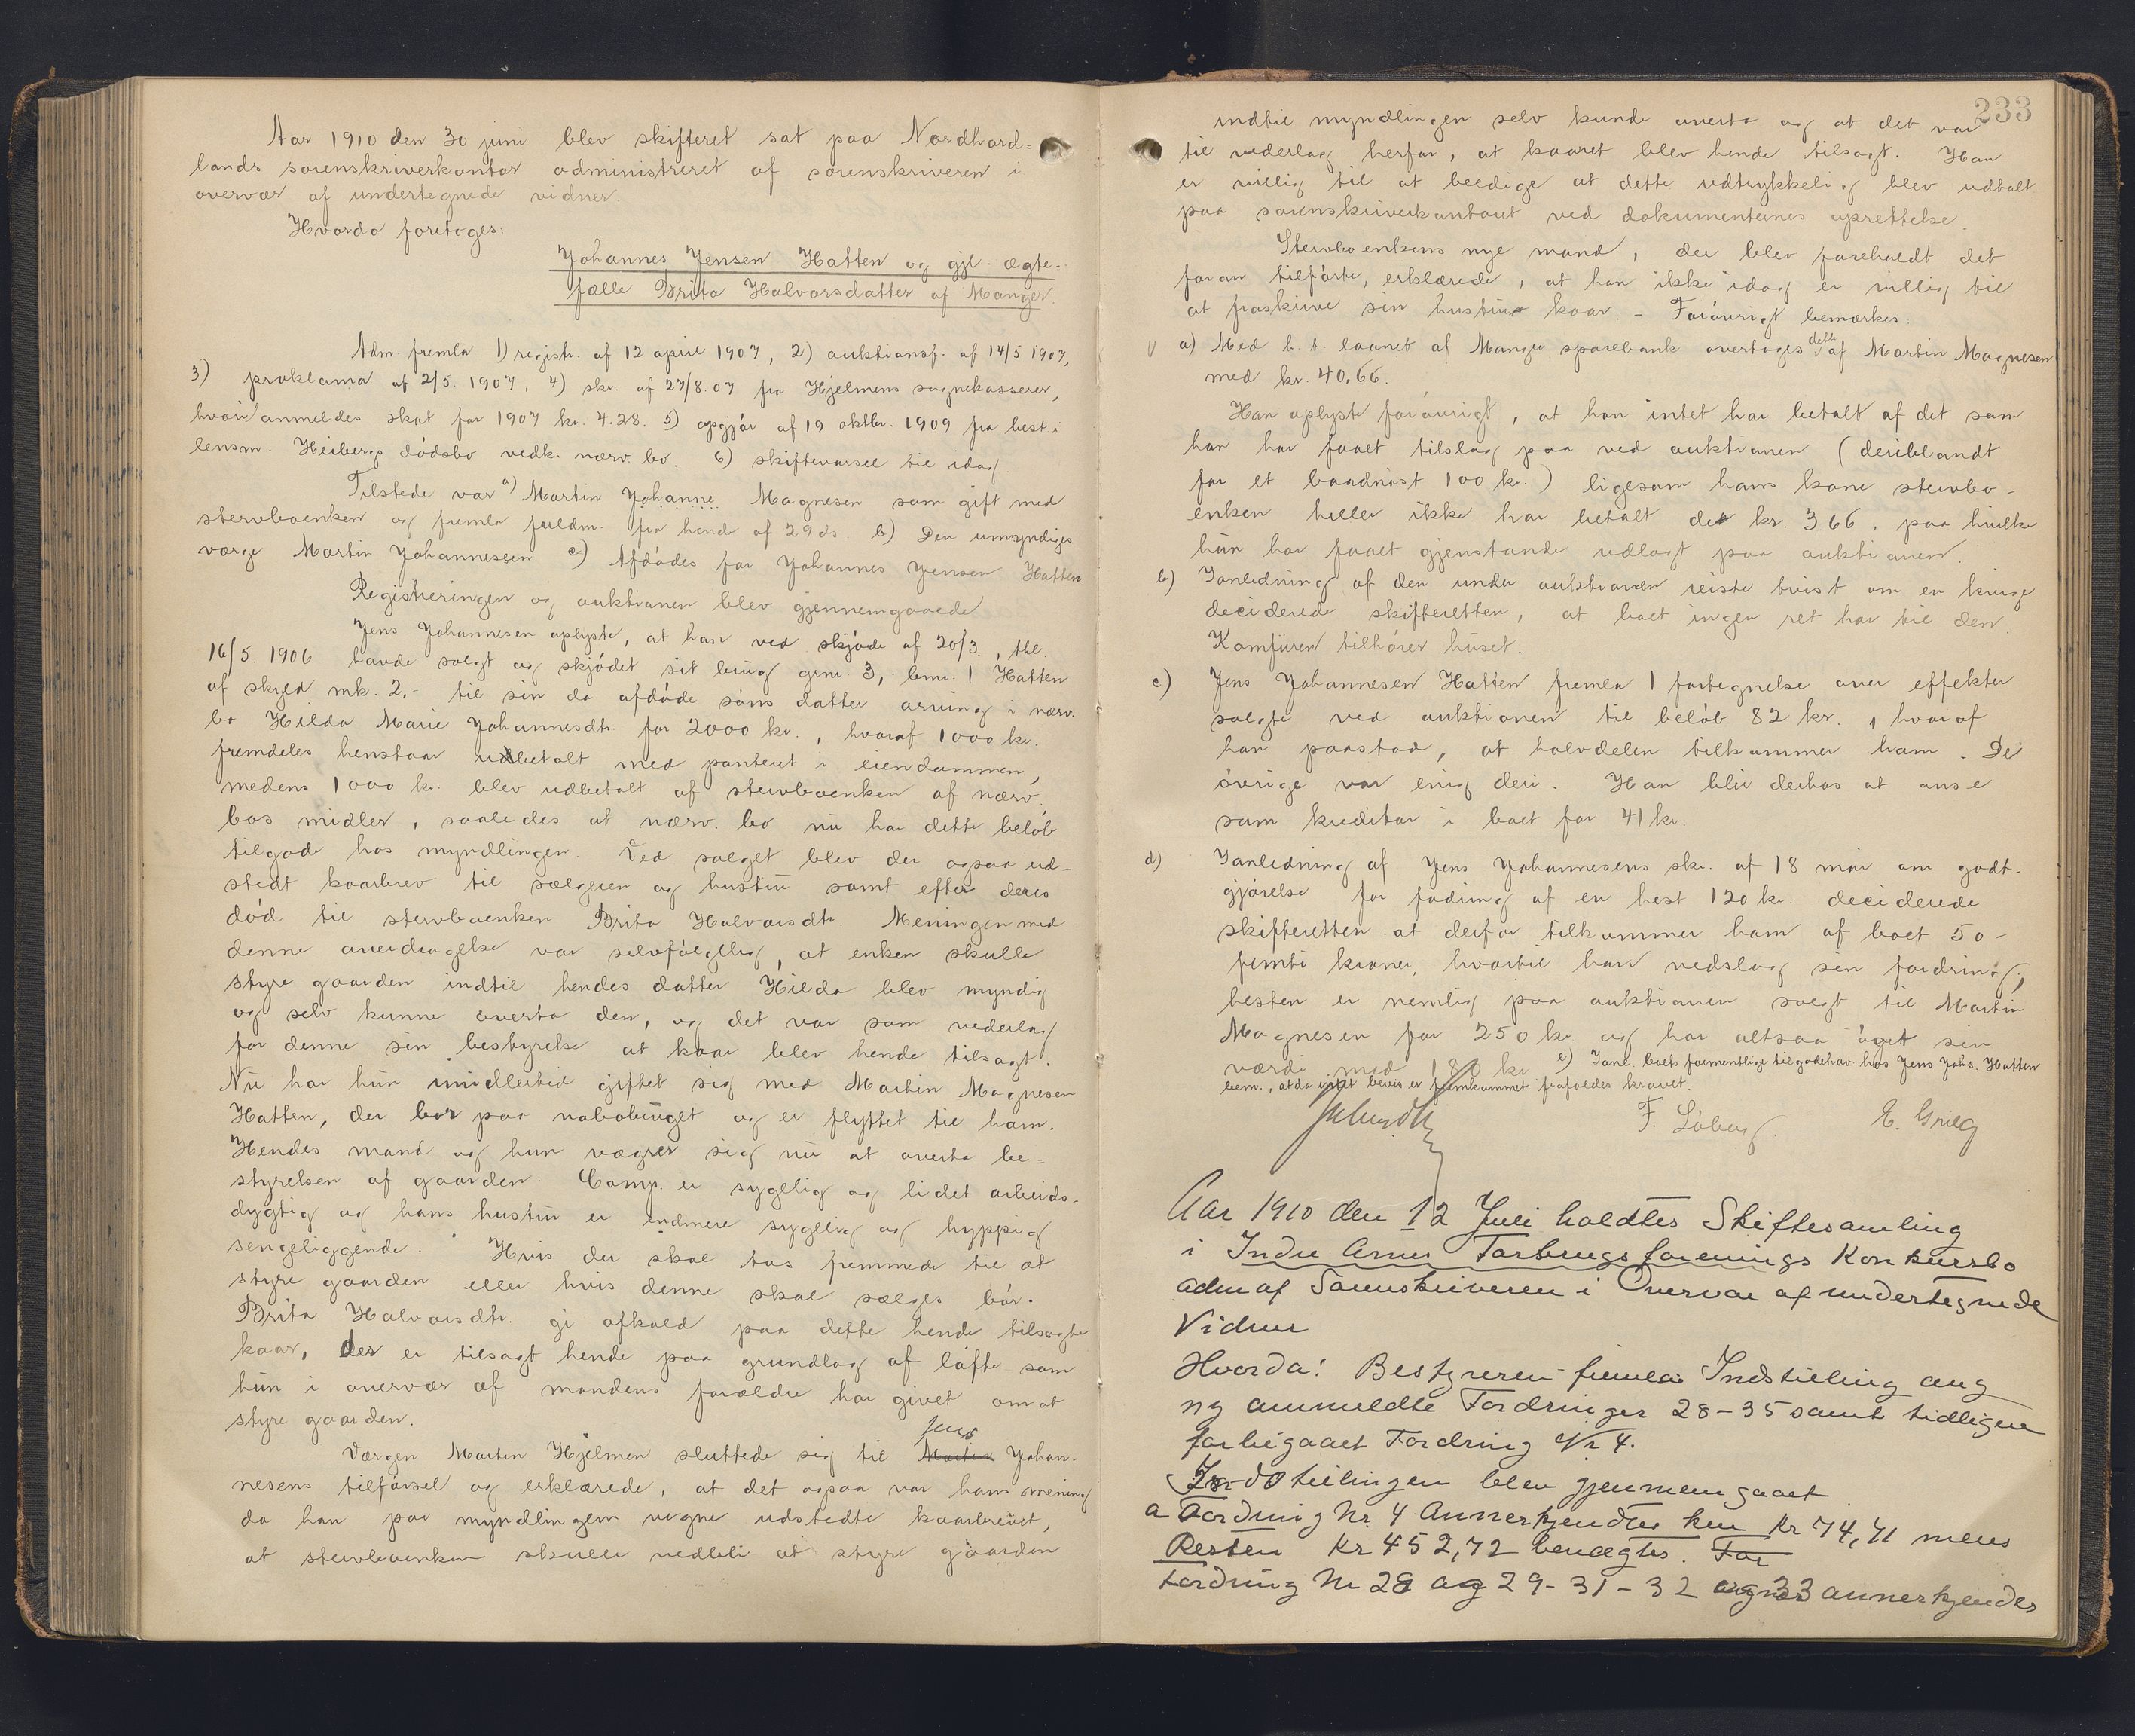 Aar 1910 den 30 juni blev skifteret sat paa Nordhord=
lands sorenskriverkontor administreret af sorenskriveren i
overvær af undertegnede vidner.
Hvorda foretoges:
Johannes Jensen Hatten og gjl. ægte=
fælle Brita Halvorsdatter af Manger.
Adm. fremla 1) registr. af 12 april 1907, 2) auktionsf. af 14/5 1907,
3) proklama af 2/5. 1907, 4) skr. af 27/8.07 fra Hjelmens sognekasserer,
hvori anmeldes skat for 1907 kr. 4.28. 5) opgjør af 19 oktbr. 1909 fra best. i
lensm. Heibergs dødsbo vedk. nærv. bo. 6) skiftevarsel til idag
Tilstede var a) Martin Johanne Magnesen som gift med
stervboenken og fremla fuldm. fra hende af 29 ds. b) Den umyndiges
værge Martin Johannessen c) Afdødes far Johannes Jensen Hatten
Registreringen og auktionen blev gjennemgaaede
Jens Johannesen oplyste, at han ved skjøde af 20/3, thl.
16/5. 1906 havde solgt og skjødet sit brug gnr. 3, bnr. 1 Hatten
af skyld mk. 2,- til sin da afdøde søns datter arving i nærv.
bo Hilda Marie Johannesdtr. for 2000 kr., hvoraf 1000 kr.
fremdeles henstaar udbetalt med panteret i eiendommen,
medens 1000 kr. blev udbetalt af stervboenken af nærv.
bos midler, saaledes at nærv. bo nu har dette beløb
tilgode hos myndlingen. Ved salget blev der ogsaa ud-
stedt kaarbrev til sælgeren og hustru samt efter deres
død til stervboenken Brita Halvorsdtr. Meningen med
denne overdragelse var selvfølgelig, at enken skulle
styre gaarden indtil hendes datter Hilda blev myndig
og selv kunne overta den, og det var som vederlag
for denne sin bestyrelse at kaar blev hende tilsagt.
Nu har hun imidlertid giftet sig med Martin Magnesen
Hatten, der bor paa nabobruget og er flyttet til ham.
Hendes mand og hun vægrer sig nu at overta be=
styrelsen af gaarden. Comp. er sygelig og lidet arbeids-
dygtig og hans hustru er endmere sygelig og hyppig
sengeliggende. Hvis der skal tas fremmede til at
styre gaarden eller hvis denne skal sælges bør
Brita Halvorsdtr. gi afkald paa dette hende tilsagte
kaar, der er tilsagt hende paa grundlag af løfte som
hun i overvær af mandens forældre har givet om at
styre gaarden.
Jens
Værgen Martin Hjelmen sluttede sig til Martin Johan-
nesens tilførsel og erklærede, at det ogsaa var hans mening
da han paa myndlingens vegne udstedte kaarbrevet,
at stervboenken skulle vedbli at styre gaarden
233
indtil myndlingen selv kunde overta og at det var
til vederlag herfor, at kaaret blev hende tilsagt. Han
er villig til at beedige at dette udtrykkelig blev udtalt
paa sorenskriverkontoret ved dokumenternes oprettelse.
Stervboenkens nye mand, der blev foreholdt det
foran tilførte, erklærede, at han ikke idag er villig til
at fraskrive sin hustru kaar. - Forøvrigt bemærkes.
a) Med h. t. laanet af Manger sparebank overtoges dette af Martin Magnesen
med kr. 40.66.
Han oplyste forøvrigt, at han intet har betalt af det som
han har faaet tilslag paa ved auktionen (deriblandt
for et baadnøst 100 kr.) ligesom hans kone stervbo-
enken heller ikke har betalt de kr. 366, paa hvilke
hun har faaet gjenstande udlagt paa auktionen.
b) I anledning af den under auktionen reiste tvist om en
deciderede skifteretten, at boet ingen ret har til den.
Komfüren tilhører huset.
c) Jens Johannesen Hatten fremla 1 fortegnelse over effekter
solgte ved auktionen til beløb 82 kr., hvoraf
han paastod, at halvdelen tilkommer ham. De
øvrige var enig deri. Han blir derhos at anse
som kreditor i boet for 41 kr.
d) I anledning af Jens Johannesens skr. af 18 mai om godt-
gjørelse for fodring af en hest 120 kr. deciderede
skifteretten at derfor tilkommer ham af boet 50 -
femti kroner, hvortil han nedslog sin fordring;
hesten er nemlig paa auktionen solgt til Martin
Magnesen for 250 kr og har altsaa øget sin
værdi med 180 kr e) I anl. boets formentlige tilgodehav. hos Jens Johs. Hatten
bem., at da intet bevis er fremkommet frafaldes kravet.
F. Løberg. E. Grieg
Aar 1910 den 12 Juli holdtes Skiftesamling
i Indre Arne Forbrugsforenings Konkursbo
adm af Sorenskriveren i Overvær af undertegnede
Vidner
Hvorda: Bestyreren fremla Indstilling ang
ny anmeldte Fordringer 28-35 samt tidligere
forbigaaet Fordring Nr 4.
Indstillingen blev gjennemgaaet
a Fordring Nr. 4 Annerkjendtes kun Kr 74,71 mens
Resten Kr 452,72 benægtes. For
Fordring Nr 28 og 29-31-32 og 33 annerkjendes